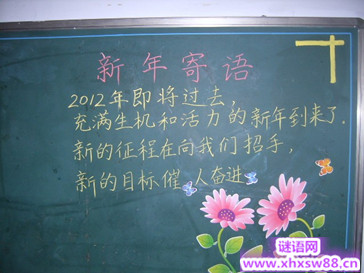 新年寄语
2012年即将过去,
充满生机和活力的新年到来了.
新的征程在向我们招手,
新的目标催人奋进
谜语网
www.xhxsw88.cn